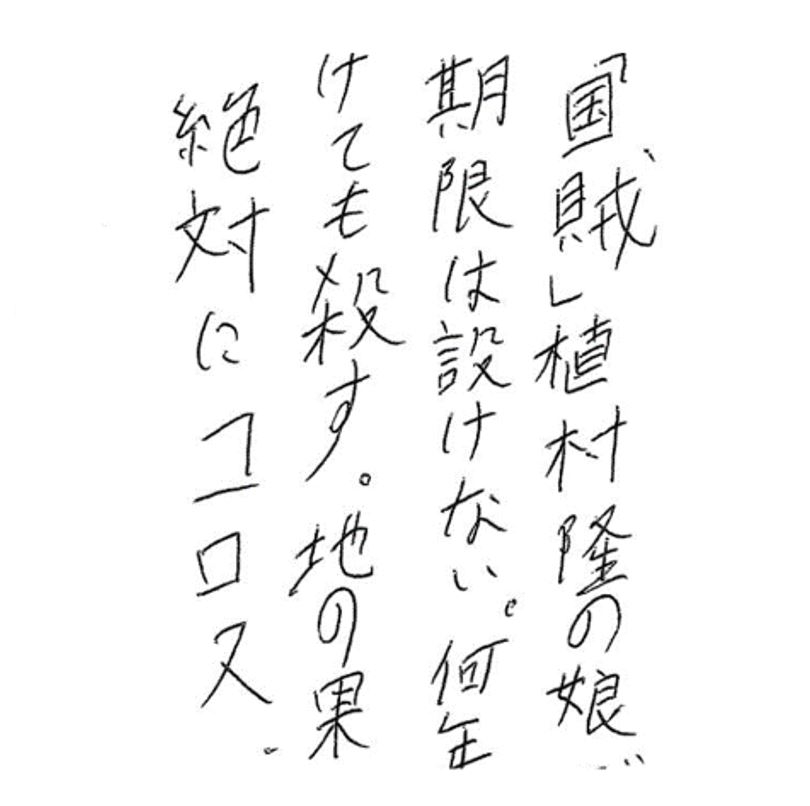 「国賊」植村隆の娘
期限は設けない。何年
けても殺す。地の果
絶対にコロス。